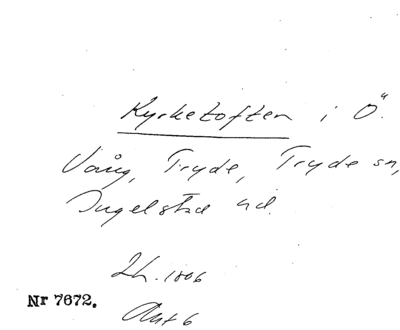 Kyrketoften i Ö.
Vång, Tryde, Tryde sn,
Ingelstad hd.
Lh. 1806
Akt 6
Nr 7672.